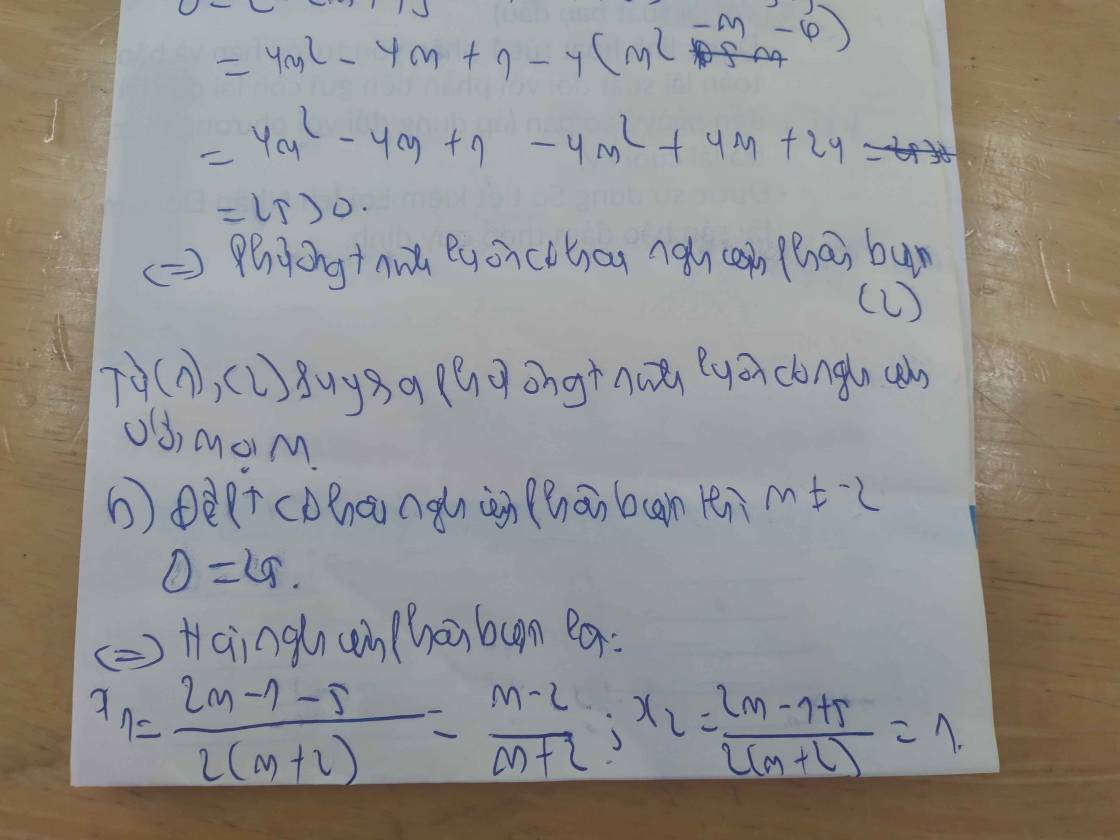 = 4m² - 4m + 1 - 4(m² -m -6)
= 4m² - 4m + 1 - 4m² + 4m + 24
= 25 > 0.
<=> Phương trình luôn có hai nghiệm phân biệt
(2)
Từ (1), (2) suy ra phương trình luôn có nghiệm
với mọi m.
b) Để pt có hai nghiệm phân biệt thì m ≠ -2
Δ = 25.
<=> Hai nghiệm phân biệt là:
x₁ = (2m - 1 - 5)/(2(m+2)) = (m-2)/(m+2); x₂ = (2m - 1 + 5)/(2(m+2)) = 1.